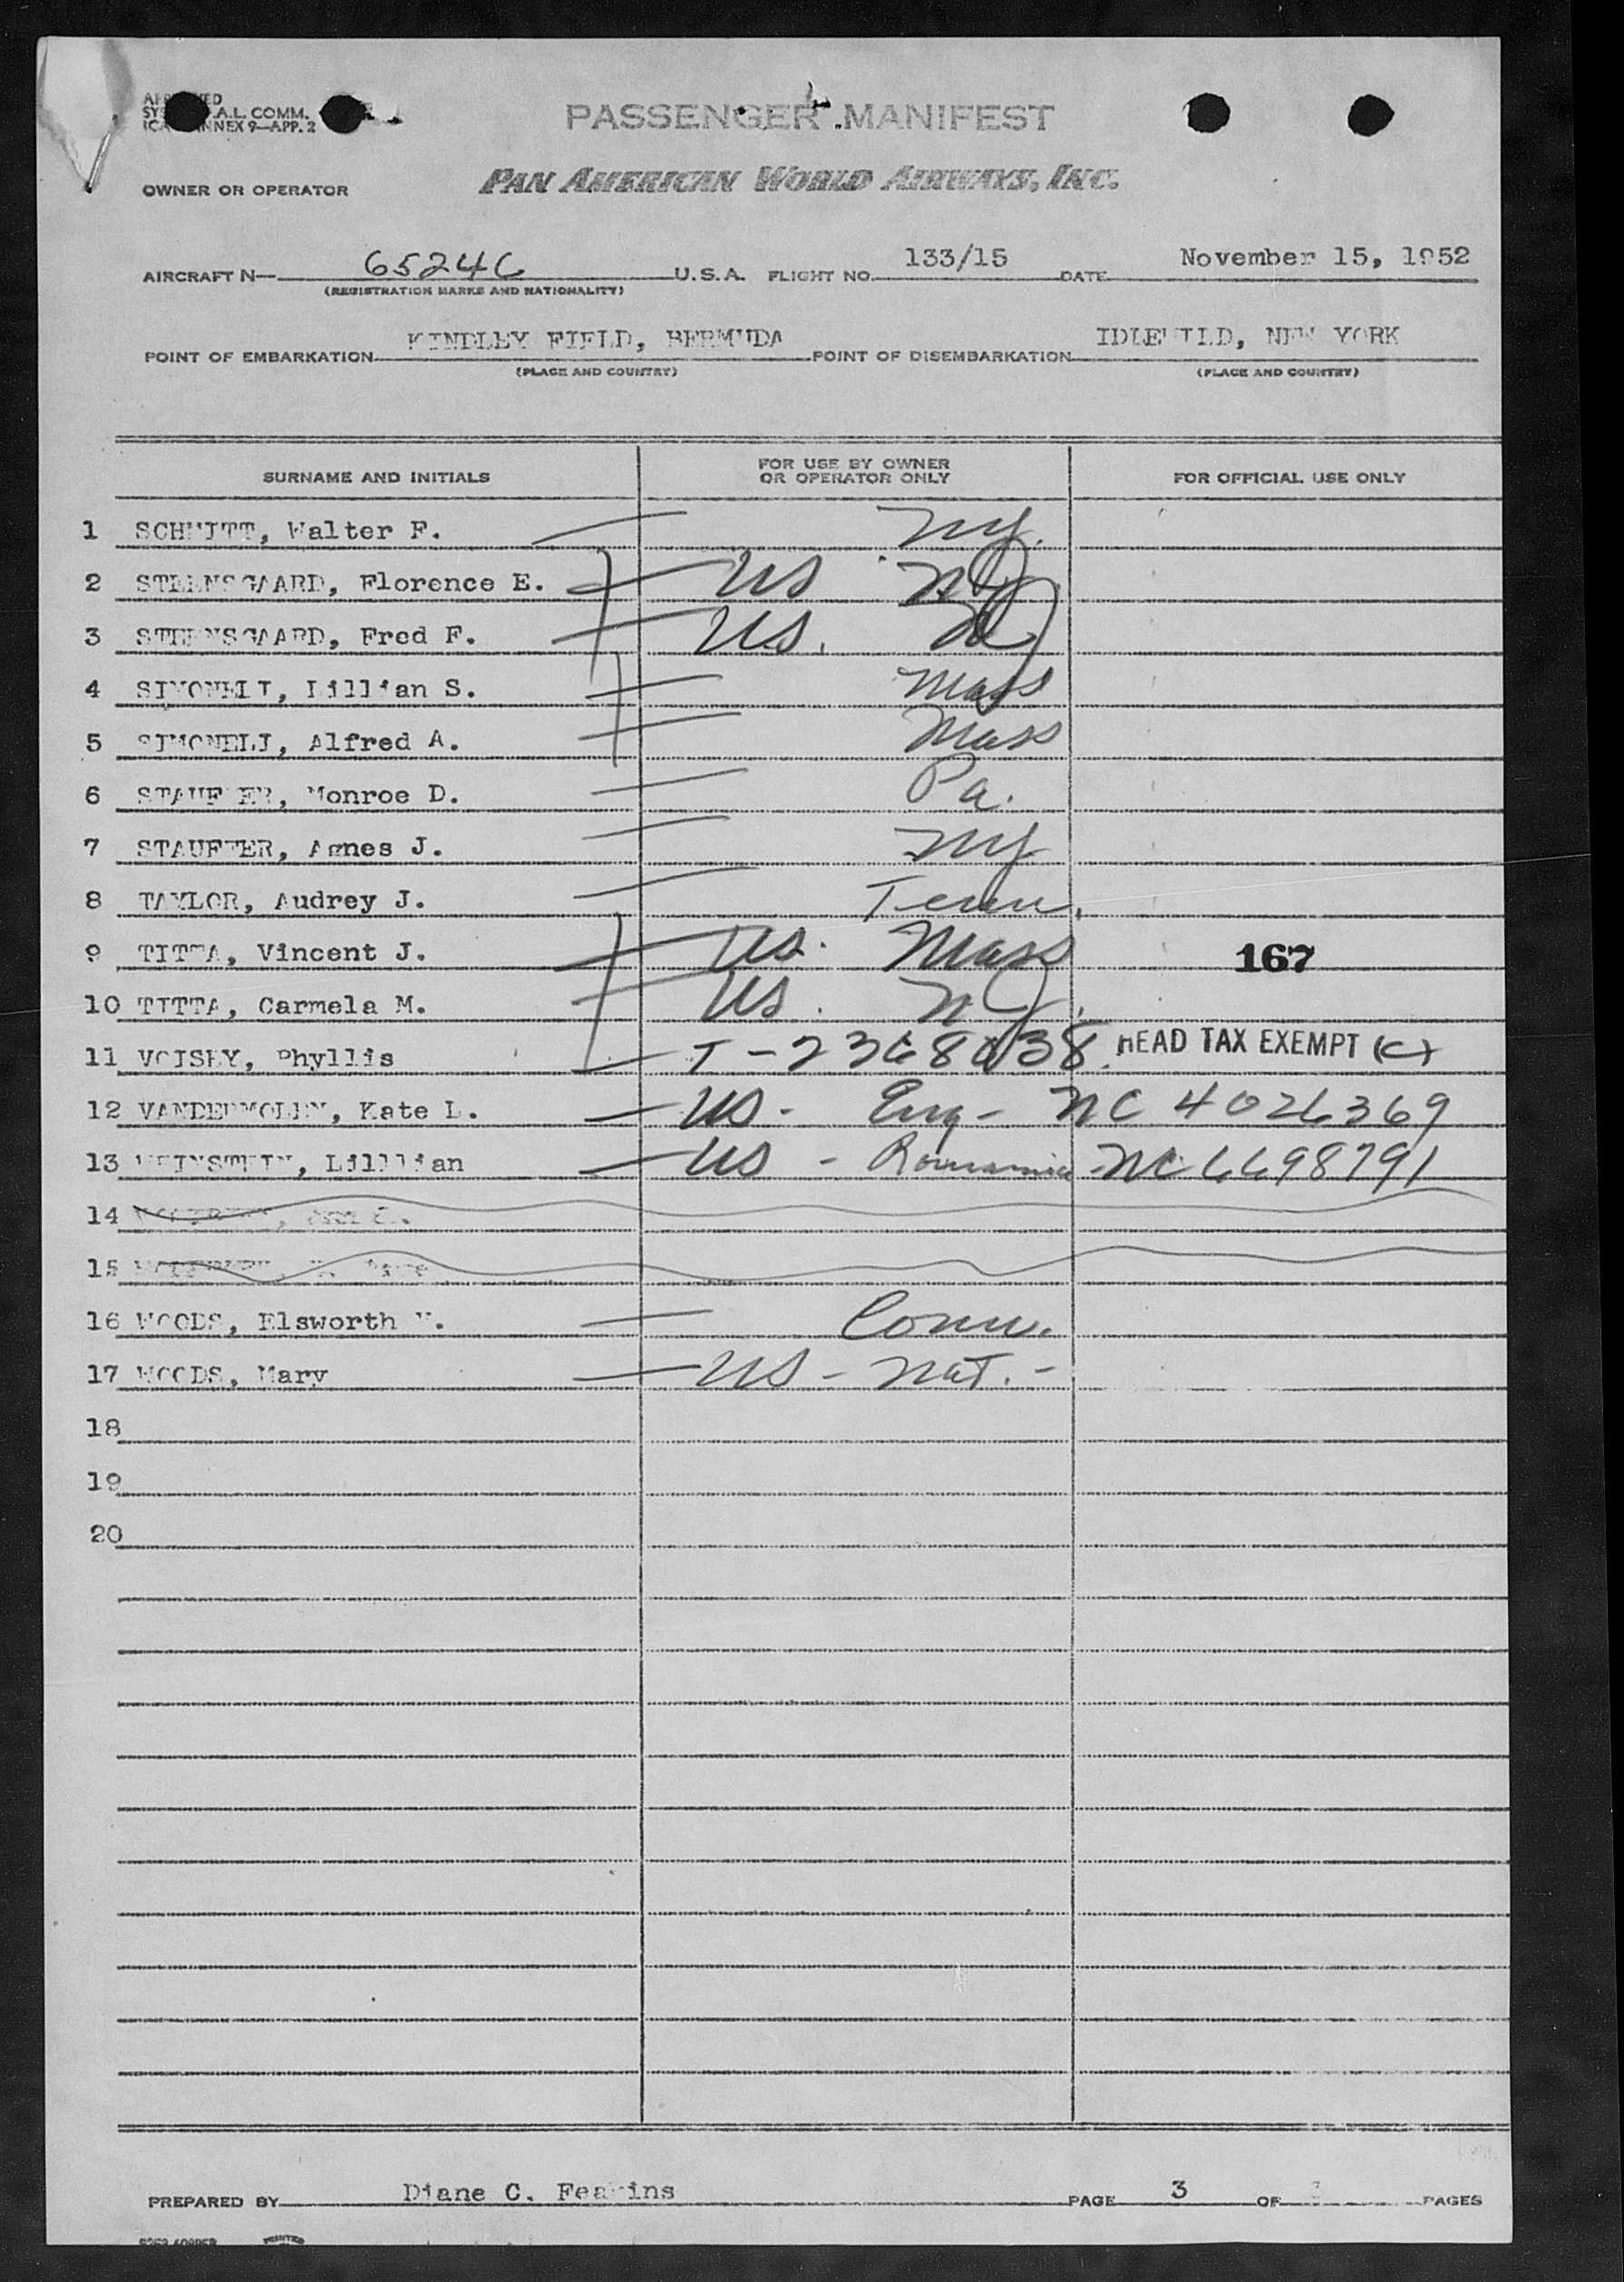 PASSENGER MANIFEST
A.L. COMM.
ANNEX 9—APP. 2
OWNER OR OPERATOR PAN AMERICAN WORLD AIRWAYS, INC.
AIRCRAFT N— 65246 U.S.A. FLIGHT NO. 133/15 DATE November 15, 1952
(REGISTRATION MARKS AND NATIONALITY)
POINT OF EMBARKATION KINDLEY FIELD, BERMUDA POINT OF DISEMBARKATION IDLEWILD, NEW YORK
(PLACE AND COUNTRY) (PLACE AND COUNTRY)
SURNAME AND INITIALS FOR USE BY OWNER OR OPERATOR ONLY FOR OFFICIAL USE ONLY
1 SCHMITT, Walter F. NY.
2 STEENSGAARD, Florence E. US NJ
3 STEENSGAARD, Fred F. US.
4 SIMONELI, Lillian S. Mass
5 SIMONELI, Alfred A. Mass
6 STAUFFER, Monroe D. Pa.
7 STAUFFER, Agnes J. NY
8 TAYLOR, Audrey J. Tenn.
9 TITTA, Vincent J. US. Mass 167
10 TITTA, Carmela M. US. NJ.
11 VOISEY, Phyllis T-2368038 HEAD TAX EXEMPT (c)
12 VANDERMOLEN, Kate L. US - Eng - NC 4026369
13 WEINSTEIN, Lilllian US - Roumania - NC 6698791
14
15
16 WOODS, Elsworth Conn.
17 WOODS, Mary US - Nat. -
18
19
20
PREPARED BY Diane C. PAGE 3 OF PAGES